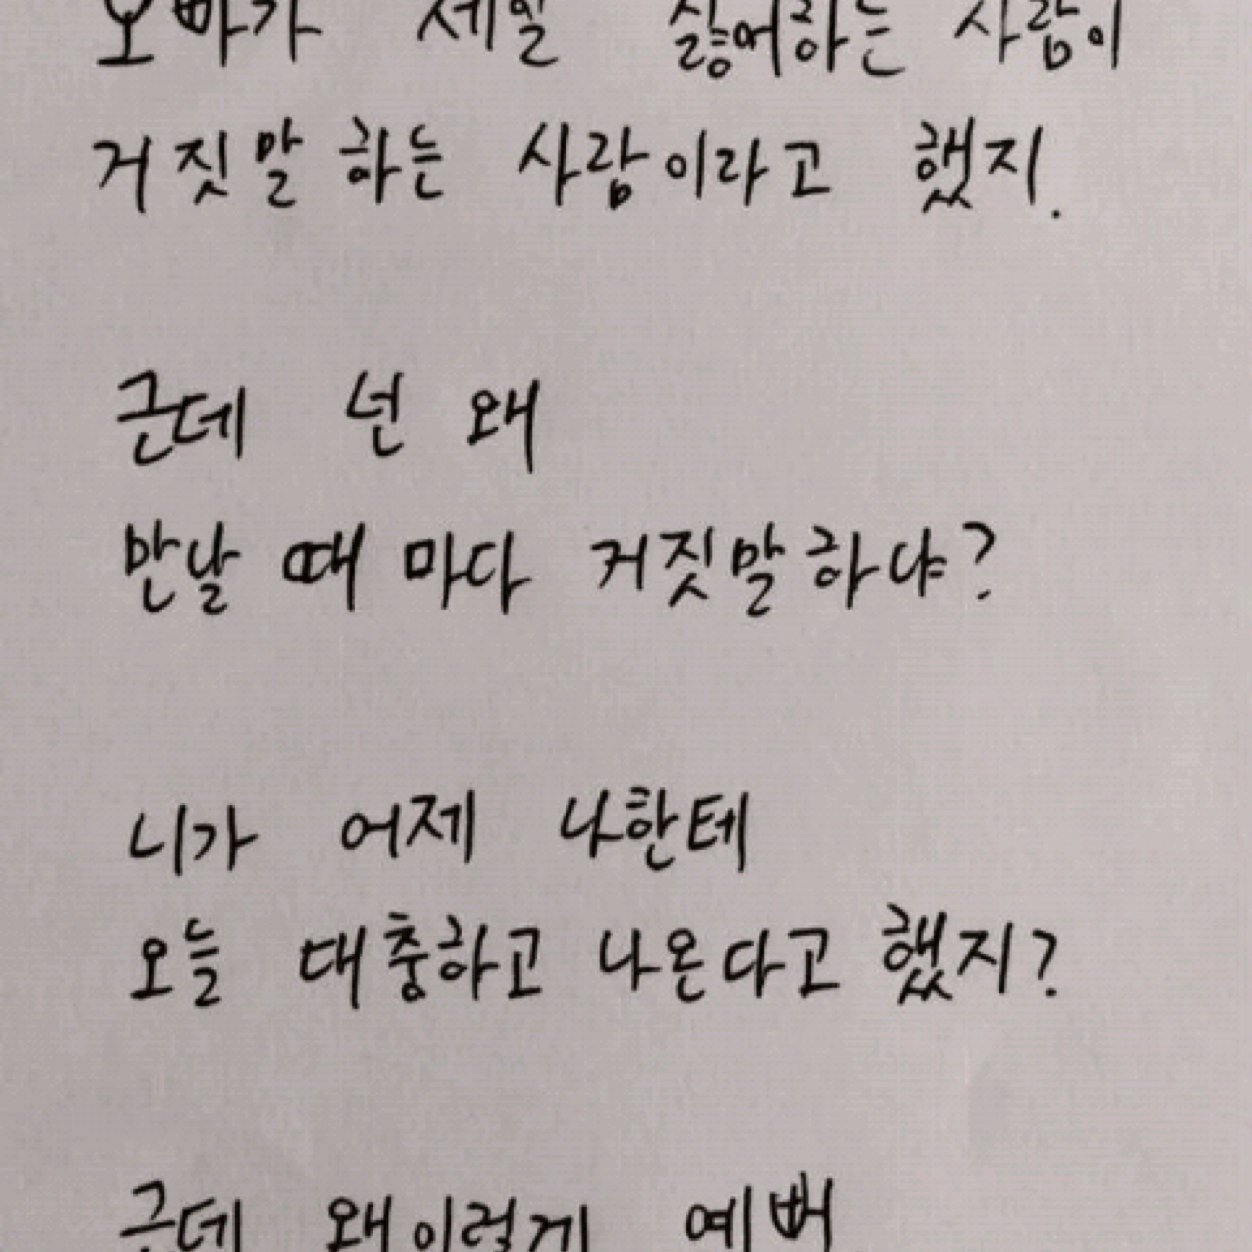 오빠가 제일 싫어하는 사람이
거짓말 하는 사람이라고 했지.
근데 넌 왜
만날 때 마다 거짓말하냐?
니가 어제 나한테
오늘 대충하고 나온다고 했지?
근데 왜이렇게 예뻐